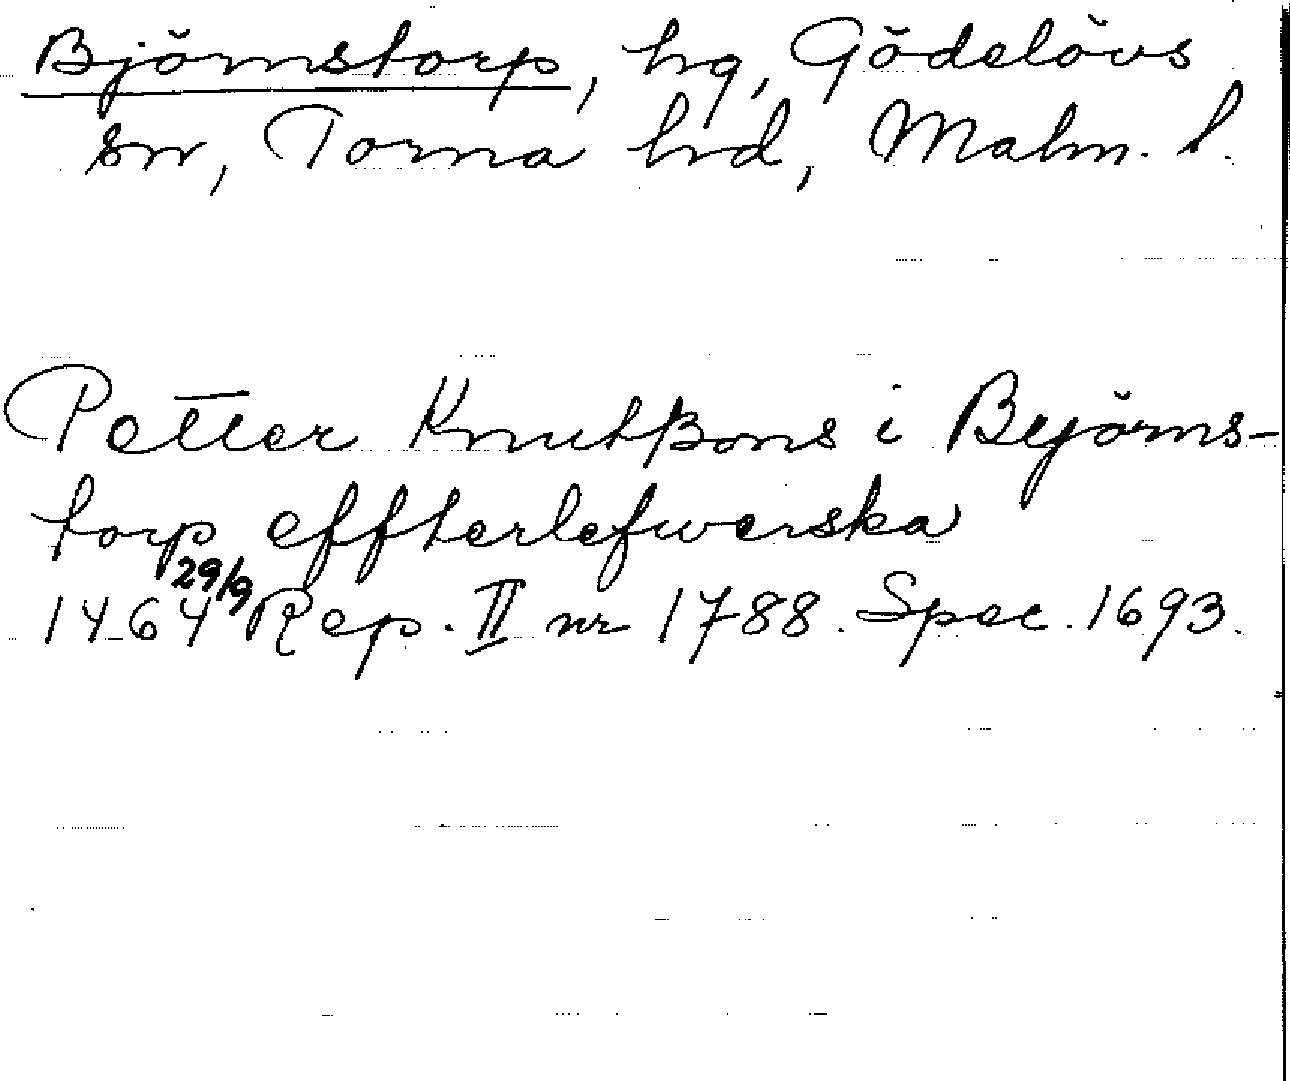 Björnstorp, hg, Gödelövs
sn, Torna hrd, Malm. l.
Petter Knutßons i Byörns-
torp effterlefwerska
1464 29/9 Rep. II nr 1788. Spec. 1693.